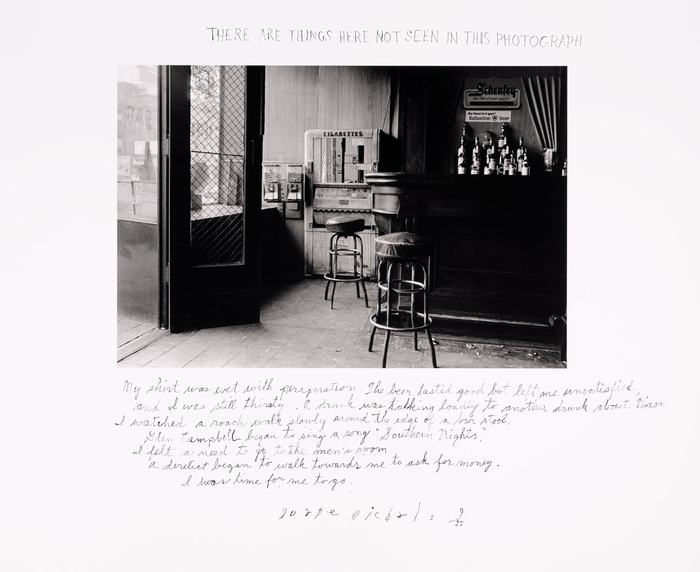 THERE ARE THINGS HERE NOT SEEN IN THIS PHOTOGRAPH
CIGARETTES
Schenley
Ballantine beer
My shirt was wet with persperation. The beer tasted good but left me unsatisfied,
and I was still thirsty. A drunk was talking loudly to another drunk about Nixon
I watched a roach walk slowly around the edge of a bar stool.
Glen Campbell began to sing a song "Southern Nights."
I felt a need to go to the men's room
a derelict began to walk towards me to ask for money.
I was time for me to go.
duane michals 9/25